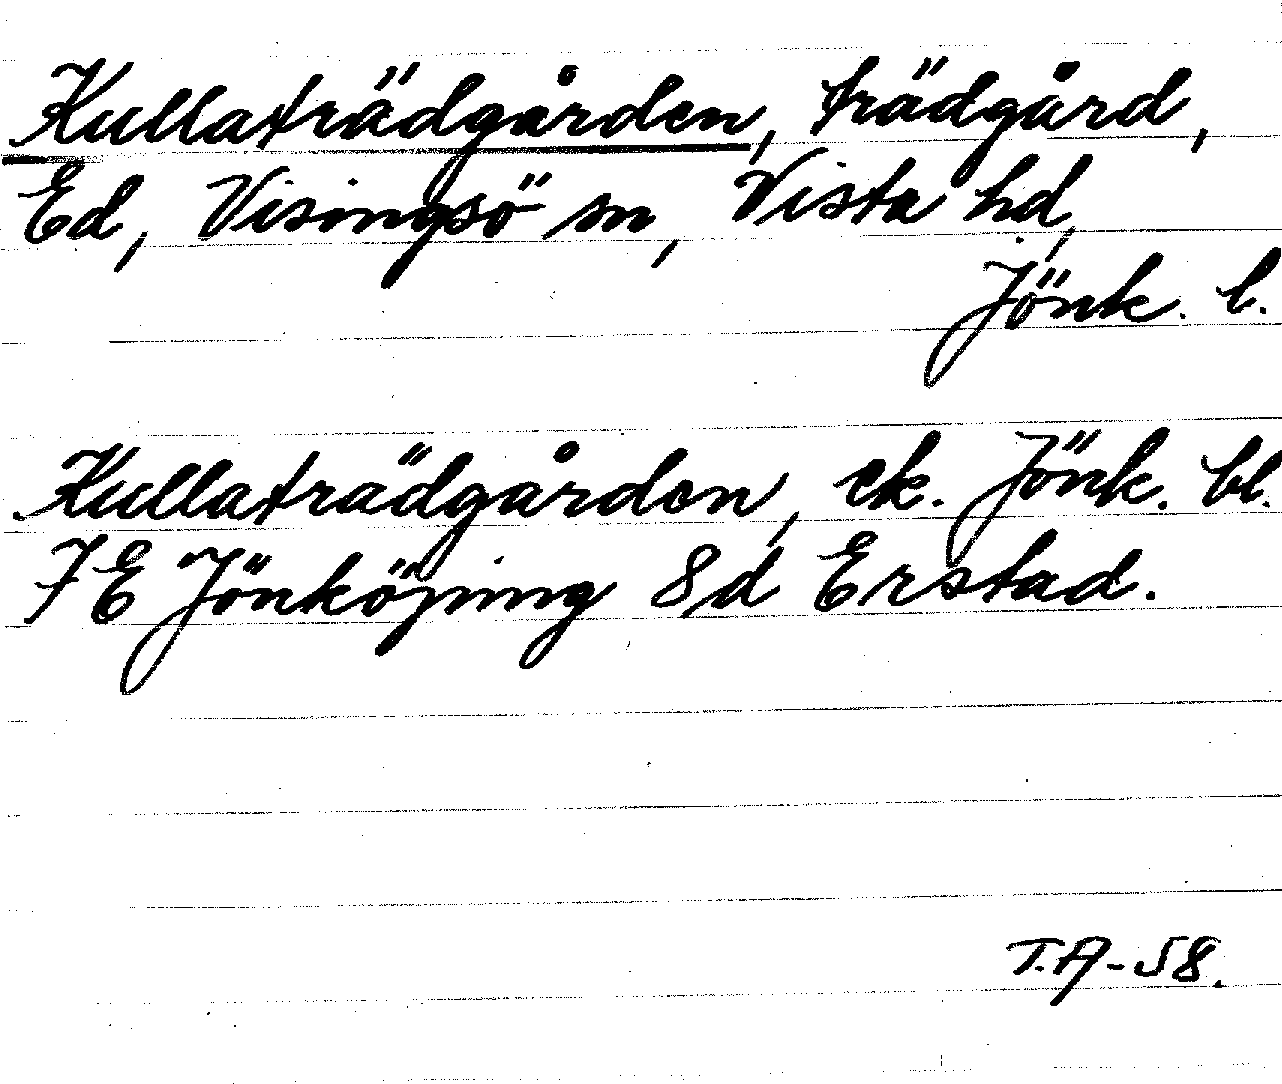 Kullaträdgården, trädgård,
Ed, Visingsö sn, Vista hd,
Jönk. l.
Kullaträdgården, ek. Jönk. bl.
7E Jönköping 8d Erstad.
T.A-58.